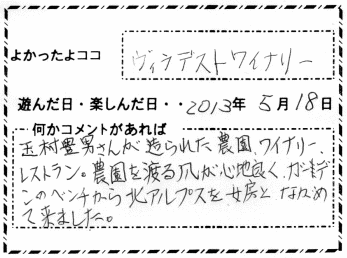 よかったよココ ヴィラデストワイナリー
遊んだ日・楽しんだ日・・2013年 5月18日
何かコメントがあれば
玉村豊男さんが造られた農園、ワイナリー、
レストラン。農園を渡る風が心地良く、ガーデ
ンのベンチから北アルプスを女房とながめ
て来ました。